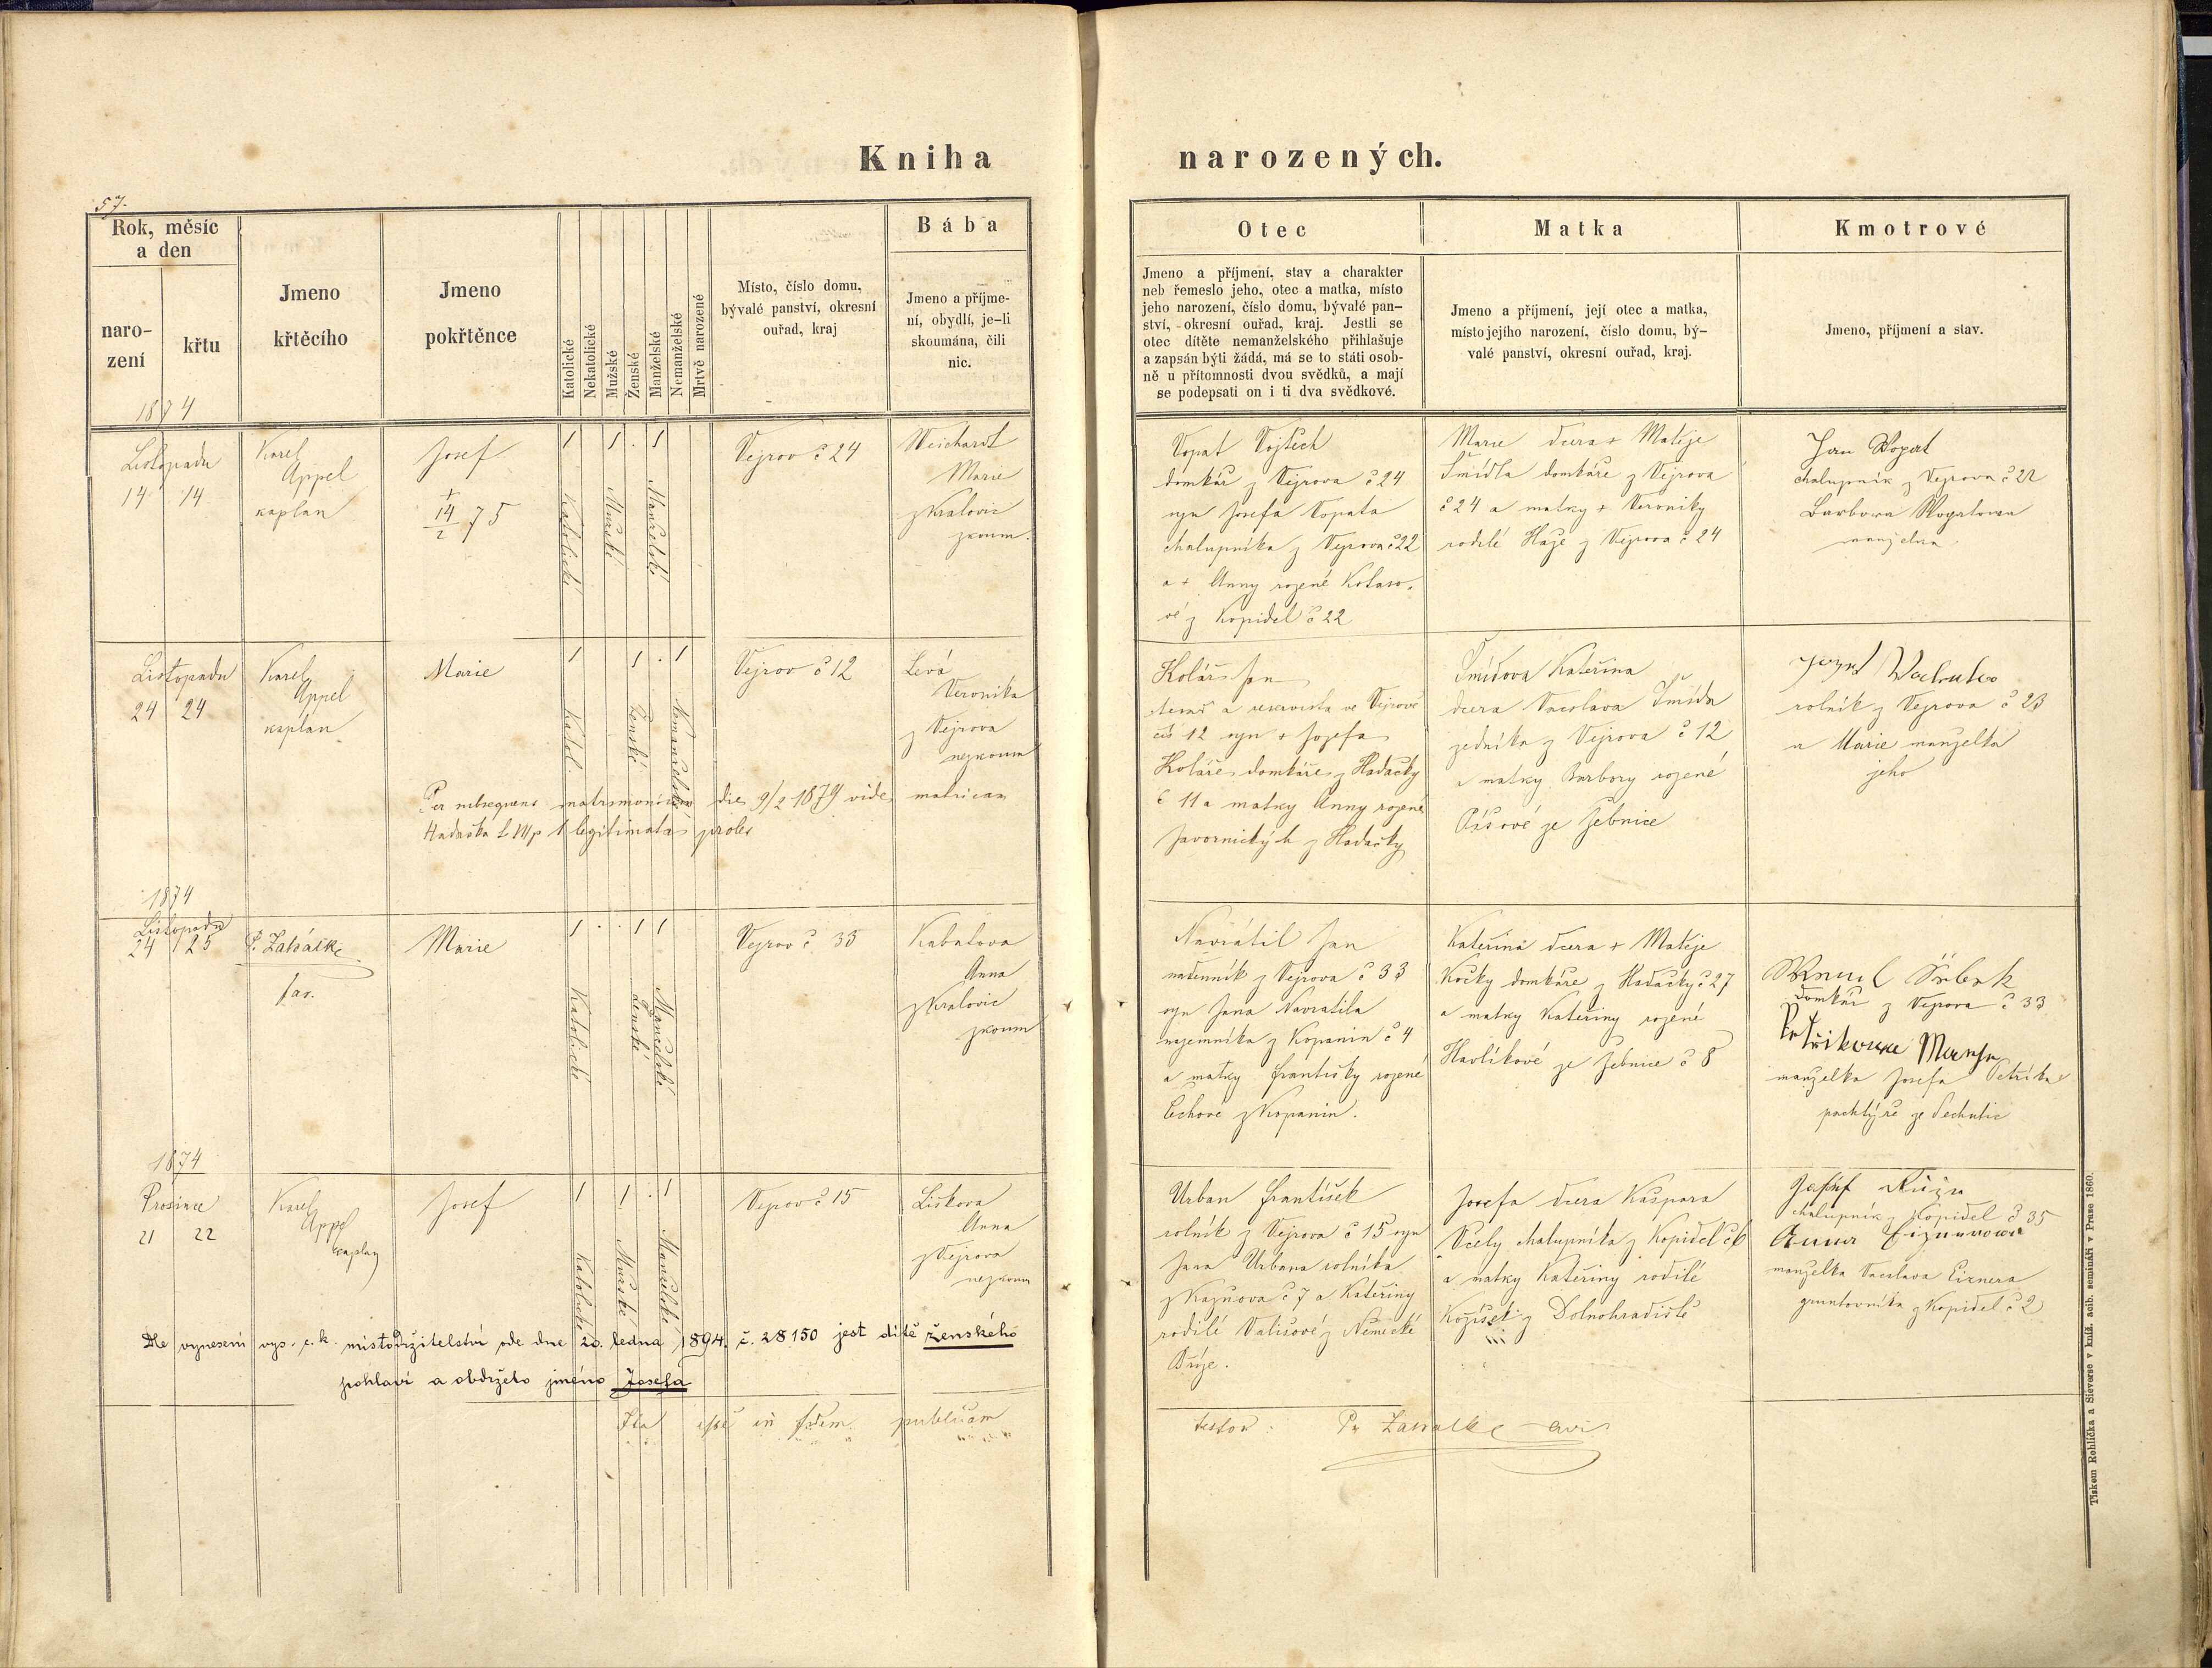 Kniha narozených.
57.
Rok, měsíc
a den
naro-
zení
křtu
Jmeno
křtěcího
Jmeno
pokřtěnce
Katolické
Nekatolické
Mužské
Ženské
Manželské
Nemanželské
Mrtvě narozené
Místo, číslo domu,
bývalé panství, okresní
ouřad, kraj
Bába
Jmeno a příjme-
ní, obydlí, je-li
skoumána, čili
nic.
Otec
Jmeno a příjmení, stav a charakter
neb řemeslo jeho, otec a matka, místo
jeho narození, číslo domu, bývalé pan-
ství, okresní ouřad, kraj. Jestli se
otec dítěte nemanželského přihlašuje
a zapsán býti žádá, má se to státi osob-
ně u přítomnosti dvou svědků, a mají
se podepsati on i ti dva svědkové.
Matka
Jmeno a příjmení, její otec a matka,
místo jejího narození, číslo domu, bý-
valé panství, okresní ouřad, kraj.
Kmotrové
Jmeno, příjmení a stav.
1874
Listopadu
14 14
Karel
Appel
kaplan
Josef
+
14/2 75
1 1 . 1
Katolické
Mužské
Manželské
Vejrov č 24
Weichardt
Marie
z Kralovic
zkoum.
Vopat Vojtěch
domkář z Vejrova č 24
syn Josefa Vopata
chalupníka z Vejrova č 22
a + Anny rozené Kolaro-
vé z Kopidel č 22
Marie dcera + Matěje
Šmídla domkáře z Vejrova
č 24 a matky + Veroniky
rodilé Haze z Vejrova č 24
Jan Wopat
chalupník z Vejrova č 22
Barbora Wopatowa
manzelka
Listopadu
24 24
Karel
Appel
kaplan
Marie
1 1 . 1
Katol.
Ženské
Nemanželské
Vejrov č 12
Levá
Veronika
z Vejrova
nezkoum
Per subsequens matrimonium die 9/2 1879 vide matricam
Hadačka legitimata proles
Kolář Jan
a reservista ve Vejrově
čís 12 syn + Josefa
Koláře domkáře z Hadačky
č 11 a matky Anny rozené
Javornických z Hadačky
Šmídova Kateřina
dcera Vacslava Šmída
zedníka z Vejrova č 12
a matky Barbory rozené
Píšové ze Žebnice
Jozef
rolník z Vejrova č 23
a Marie manzelka
jeho
1874
Listopadu
24 25
P. Zahálka
far.
Marie
1 . . 1 1
Katolické
Ženské
Manželské
Vejrov č 33
Kabatova
Anna
z Kralovic
zkoum
Navrátil Jan
nadenník z Vejrova č 33
syn Jana Navratila
najemníka z Kopanin č 4
a matky Františky rozené
Čechové z Kopanin.
Kateřina dcera + Matěje
Kočky domkáře z Hadačky č 27
a matky Kateřiny rozené
Havlíkové ze Žebnice č 8
domkář z Vejrova č 33
manzelka Josefa Petříka
pachtýře ze Sechutic
1874
Prosince
21 22
Karel
Appel
kaplan
Josef
1 1 . 1
Katolické
Mužské
Manželské
Vejrov č 15
Liskova
Anna
z Vejrova
nezkoum
Urban František
rolník z Vejrova č 15 syn
Jana Urbana rolníka
z Kaznova č 7 a Kateřiny
rodilé Vališové z Německé
Břízy.
Josefa dcera Kašpara
Včely chalupníka z Kopidel č 6
a matky Kateřiny rodilé
Kozíšek z Dolnohradiště
Josef Růža
chalupník z Kopidel č 35
Anna
manzelka Vacslava Eisnera
gruntovníka z Kopidel č 2
Dle vynesení vys. c. k. místodržitelství ode dne 20. ledna 1894. č. 28150 jest dítě ženského
pohlaví a obdrželo jméno Josefa
Ita esse in fidem publicam
testor: Zahalka
Tiskem Rohlíčka a Sieverse v kníž. acib. semináři v Praze 1860.